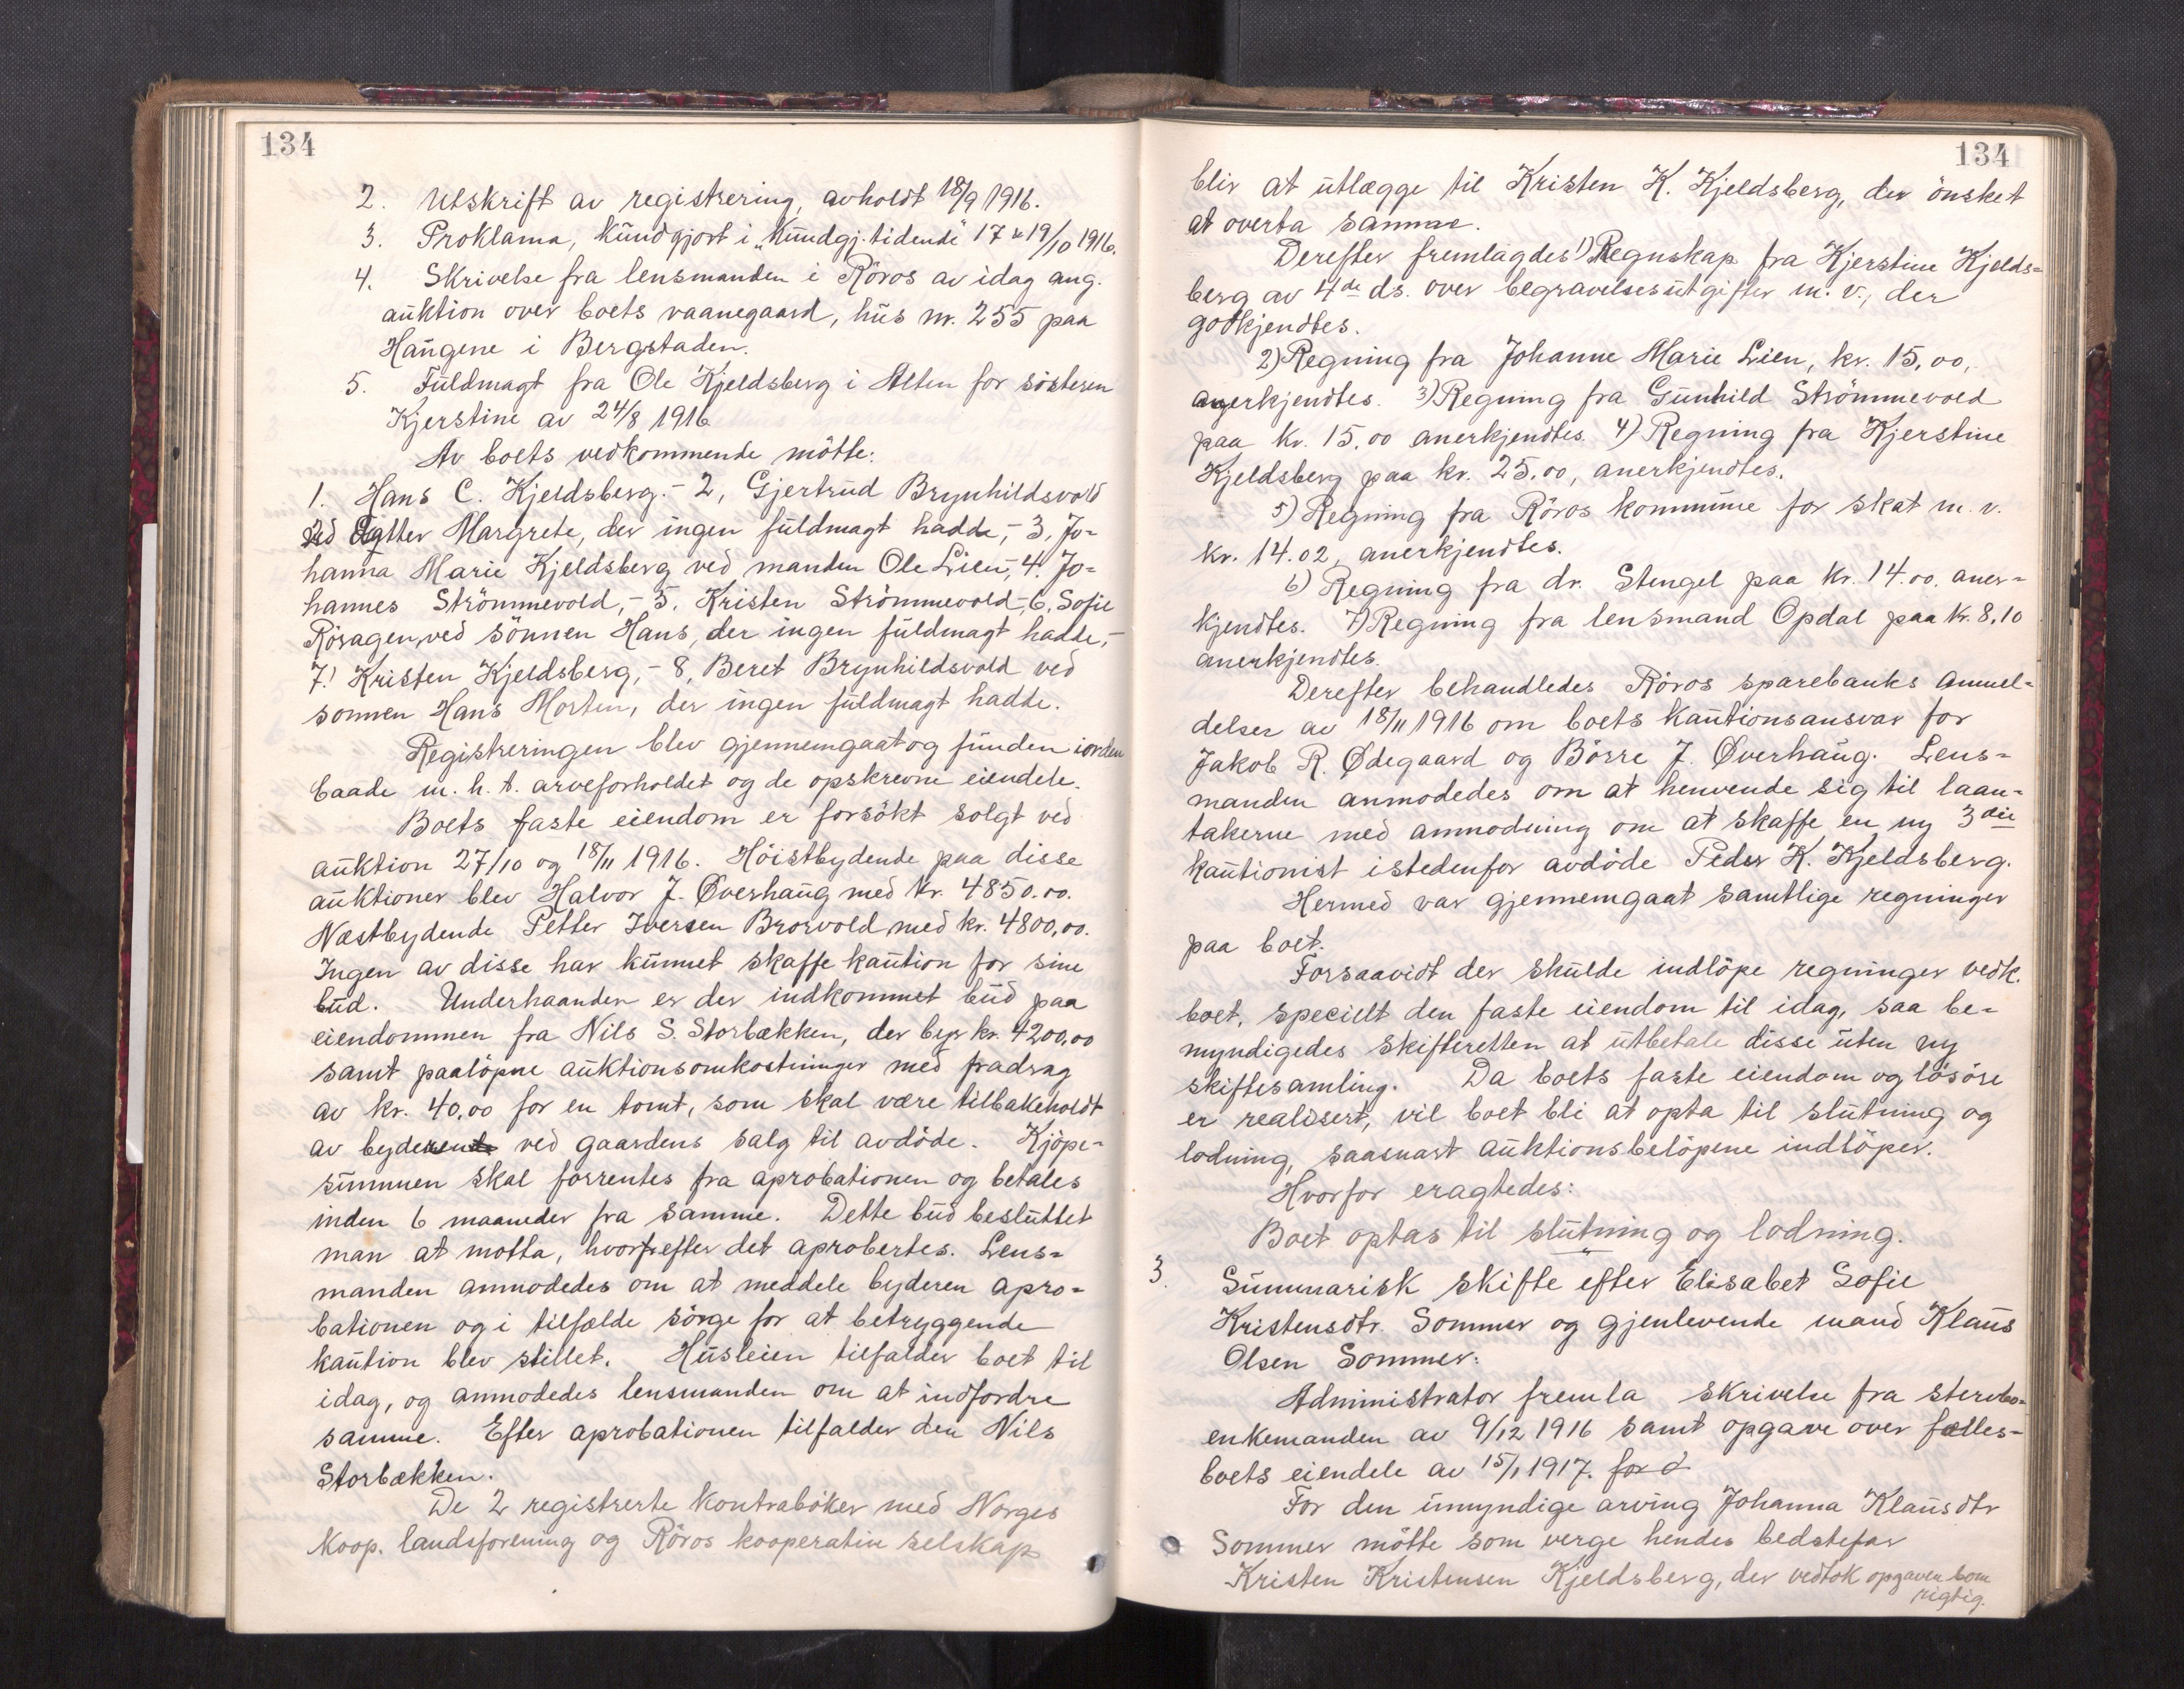 134
2. Utskrift av registrering, avholdt 18/9 1916.
3. Proklama, kundgjort i "Kundgj.tidende" 17 & 19/10 1916.
4. Skrivelse fra lensmanden i Röros av idag ang.
auktion over boets vaanegaard, hus nr. 255 paa
Haugene i Bergstaden.
5. Fuldmagt fra Ole Kjeldsberg i Alten for søsteren
Kjerstine av 24/8 1916
Av boets vedkommende mötte:
1. Hans C. Kjeldsberg.- 2, Gjertrud Brynhildsvold
ved datter Margrete, der ingen fuldmagt hadde,- 3, Jo-
hanna Marie Kjeldsberg ved manden Ole Lien,- 4. Jo-
hannes Strömmevold,- 5. Kristen Strömmevold,- 6, Sofie
Rösagen, ved sönnen Hans, der ingen fuldmagt hadde,-
7. Kristen Kjeldsberg,- 8, Beret Brynhildsvold ved
sonnen Hans Morten, der ingen fuldmagt hadde.
Registreringen blev gjennemgaat og funden iorden
baade m. h. t. arveforholdet og de opskrevne eiendele.
Boets faste eiendom er forsökt solgt ved
auktion 27/10 og 18/11 1916. Höistbydende paa disse
auktioner blev Halvor J. Øverhaug med kr. 4850.00.
Næstbydende Petter Iversen Brorvold med kr. 4800,00.
Ingen av disse har kunnet skaffe kaution for sine
bud. Underhaanden er der indkommet bud paa
eiendommen fra Nils S. Storbækken, der byr kr. 4200,00
samt paalöpne auktionsomkostninger med fradrag
av kr. 40,00 for en tomt, som skal være tilbakeholdt
av byderen ved gaardens salg til avdöde. Kjöpe-
summen skal forrentes fra aprobationen og betales
inden 6 maaneder fra samme. Dette bud besluttet
man at motta, hvorefter det aprobertes. Lens-
manden anmodedes om at meddele byderen apro-
bationen og i tilfælde sörge for at betryggende
kaution blev stillet. Husleien tilfalder boet til
idag, og anmodedes lensmanden om at indfordre
samme. Efter aprobationen tilfalder den Nils
Storbækken.
De 2 registrerte kontraböker med Norges
koop. landsforening og Röros kooperativ selskap
134
blir at utlægge til Kristen K. Kjeldsberg, der önsket
at overta samme.
Derefter fremlagdes 1) Regnskap fra Kjerstine Kjelds-
berg av 4de ds. over begravelsesutgifter m. v., der
godkjendtes.
2) Regning fra Johanne Marie Lien, kr. 15,00,
anerkjendtes. 3) Regning fra Gunhild Strömmevold
paa kr. 15.00 anerkjendtes. 4) Regning fra Kjerstine
Kjeldsberg paa kr. 25.00, anerkjendtes.
5) Regning fra Röros kommune for skat m. v.
kr. 14.02, anerkjendtes.
6) Regning fra dr. Stengel paa kr. 14.00. aner-
kjendtes. 7) Regning fra lensmand Opdal paa kr. 8,10
anerkjendtes.
Derefter behandledes Röros sparebanks anmel-
delser av 18/11 1916 om boets kautionsansvar for
Jakob R. Ødegaard og Börre J. Øverhaug. Lens-
manden anmodedes om at henvende sig til laan-
takerne med anmodning om at skaffe en ny 3die
kautionist istedenfor avdöde Peder K. Kjeldsberg.
Hermed var gjennemgaat samtlige regninger
paa boet.
Forsaavidt der skulde indlöpe regninger vedk.
boet, specielt den faste eiendom til idag, saa be-
myndigedes skifteretten at utbetale disse uten ny
skiftesamling. Da boets faste eiendom og lösöre
er realisert, vil boet bli at opta til slutning og
lodning, saasnart auktionsbelöpene indlöper.
Hvorfor eragtedes:
Boet optas til slutning og lodning.
3. Summarisk skifte efter Elisabet Sofie
Kristensdtr. Sommer og gjenlevende mand Klaus
Olsen Sommer:
Administrator fremla skrivelse fra stervbo-
enkemanden av 9/12 1916 samt opgave over fælles-
boets eiendele av 15/1 1917. for d
For den umyndige arving Johanna Klausdtr
Sommer mötte som verge hendes bedstefar
Kristen Kristensen Kjeldsberg, der vedtok opgaven som
rigtig.